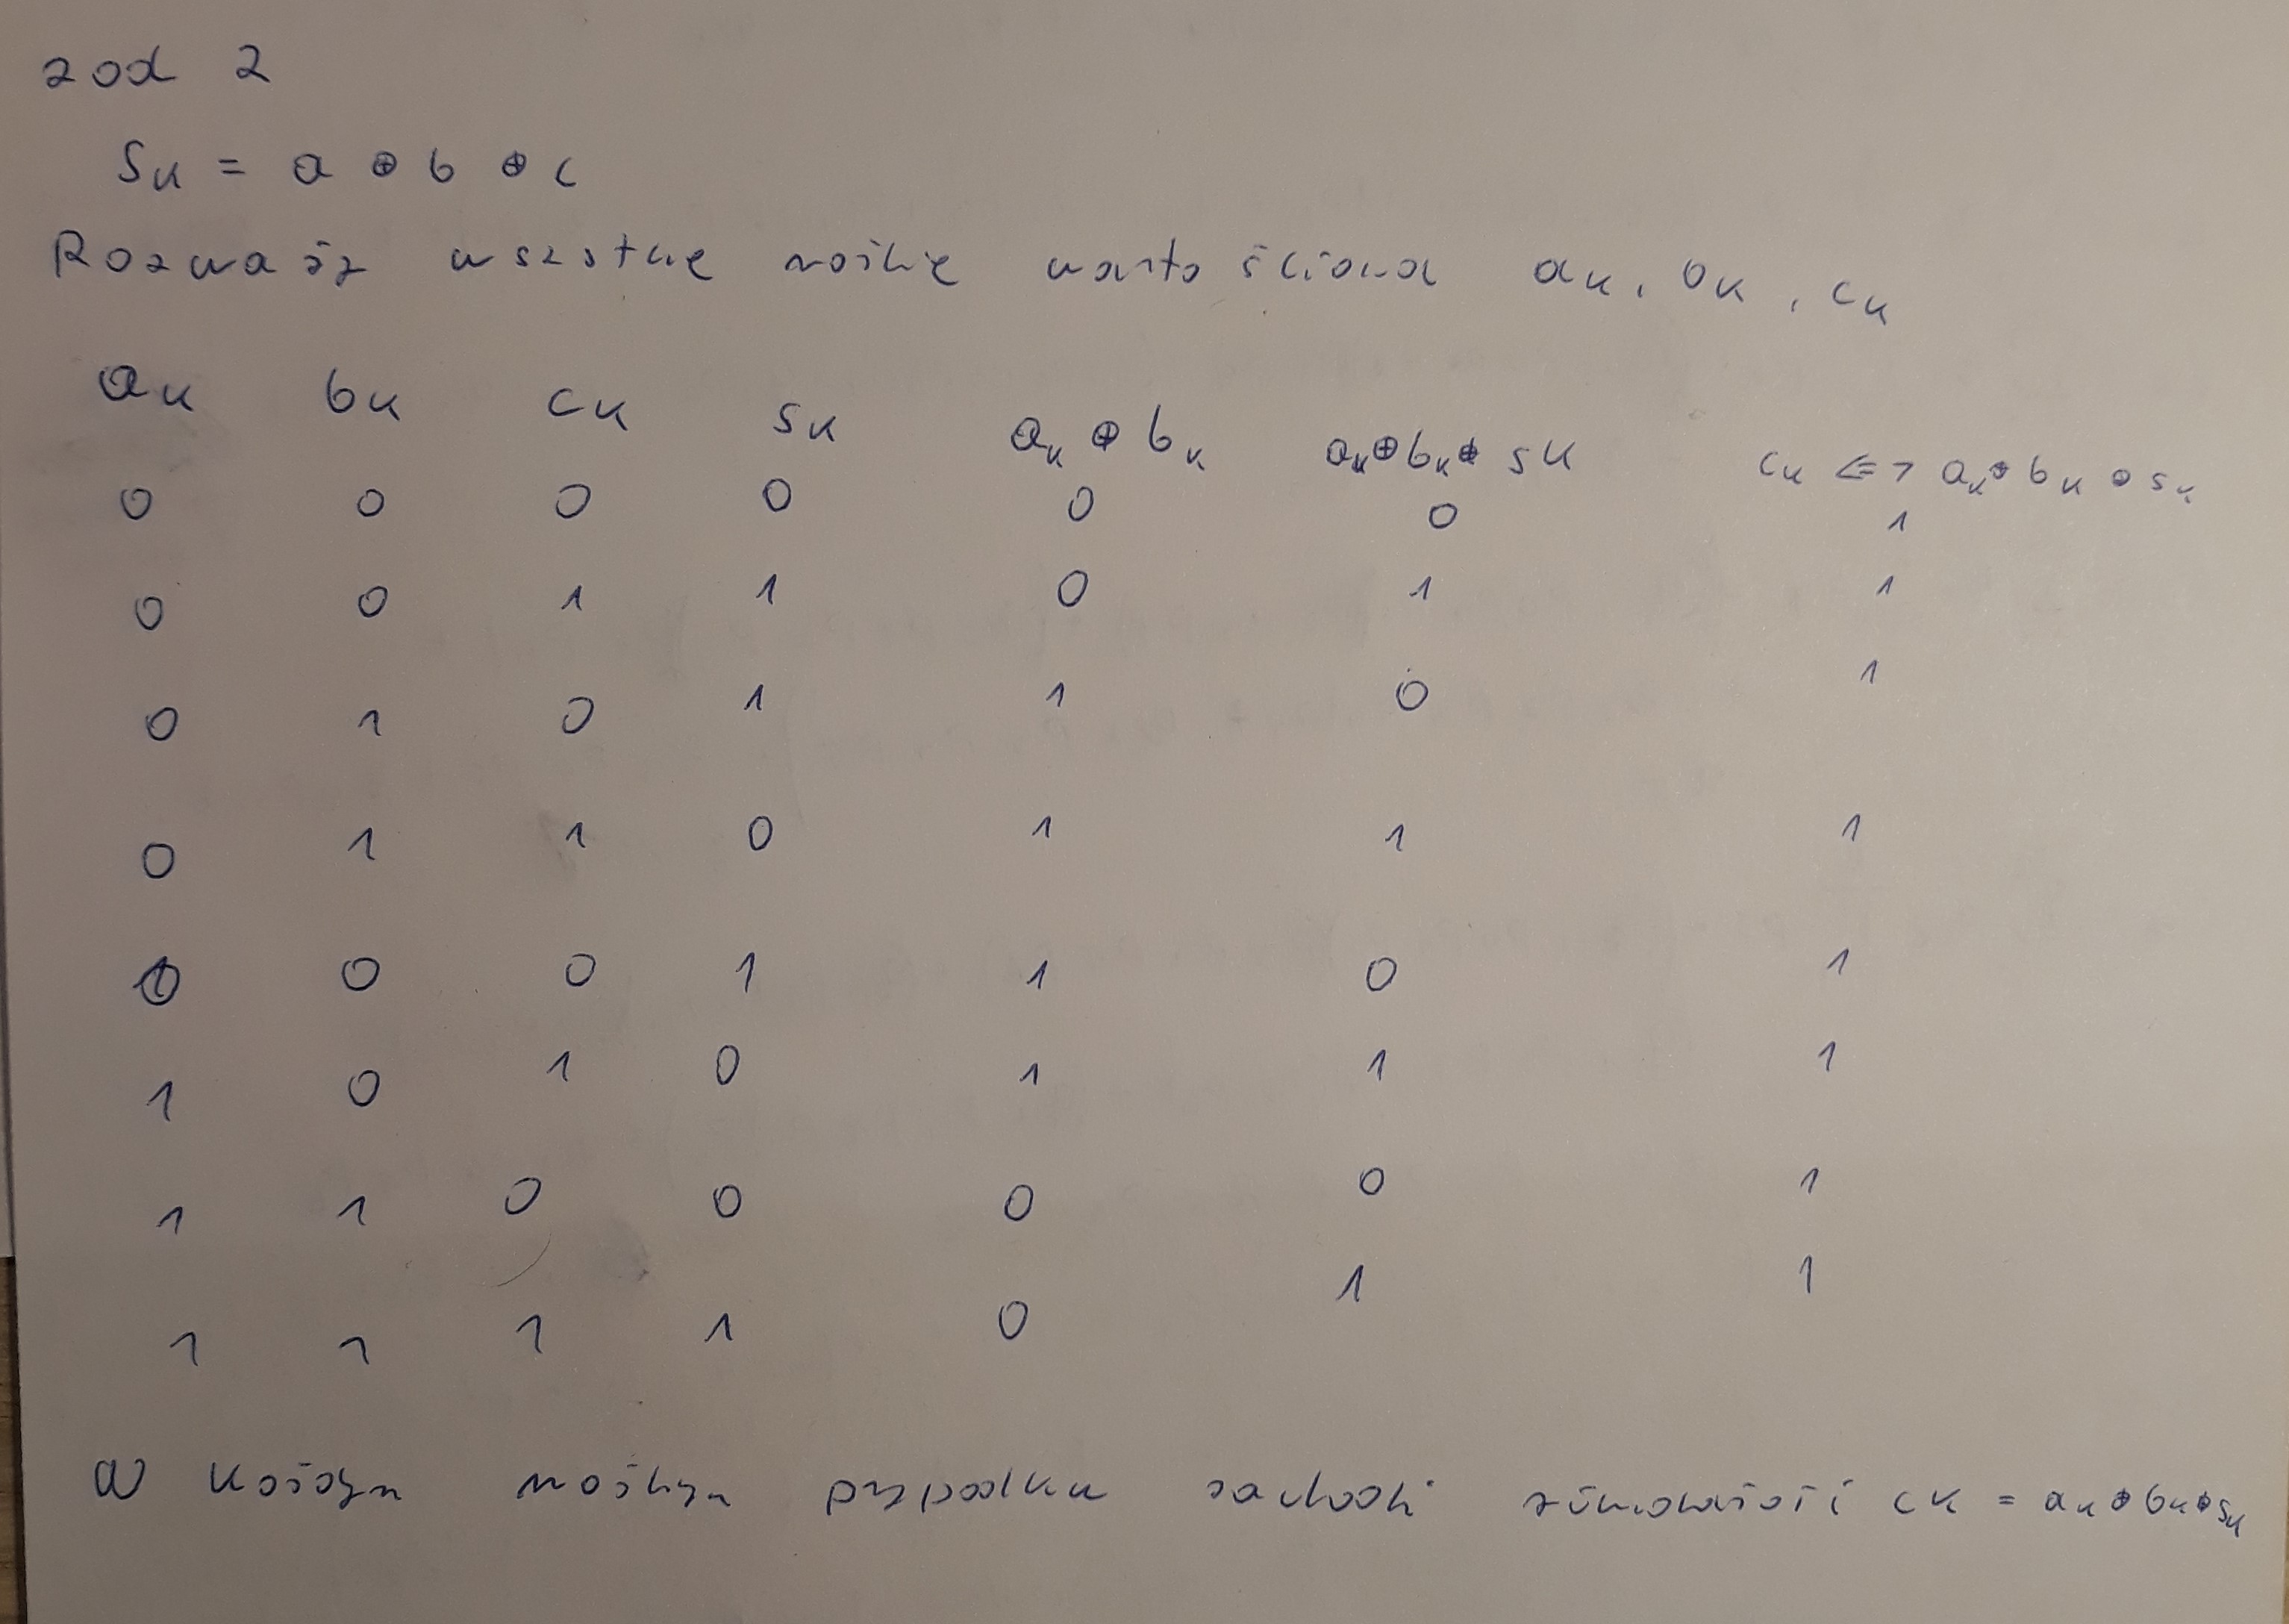 zad 2
Sk = a ⊕ b ⊕ c
Rozważy wszstkie możlie wartościowa ak, bk, ck
ak bk ck sk ak ⊕ bk ak⊕bk⊕ sk ck <=> ak⊕ bk ⊕ sk
0 0 0 0 0 0 1
0 0 1 1 0 1 1
0 1 0 1 1 0 1
0 1 1 0 1 1 1
1 0 0 1 1 0 1
1 0 1 0 1 1 1
1 1 0 0 0 0 1
1 1 1 1 0 1 1
W każdym możlym przypadku zachodzi równoważość ck = ak⊕bk⊕sk